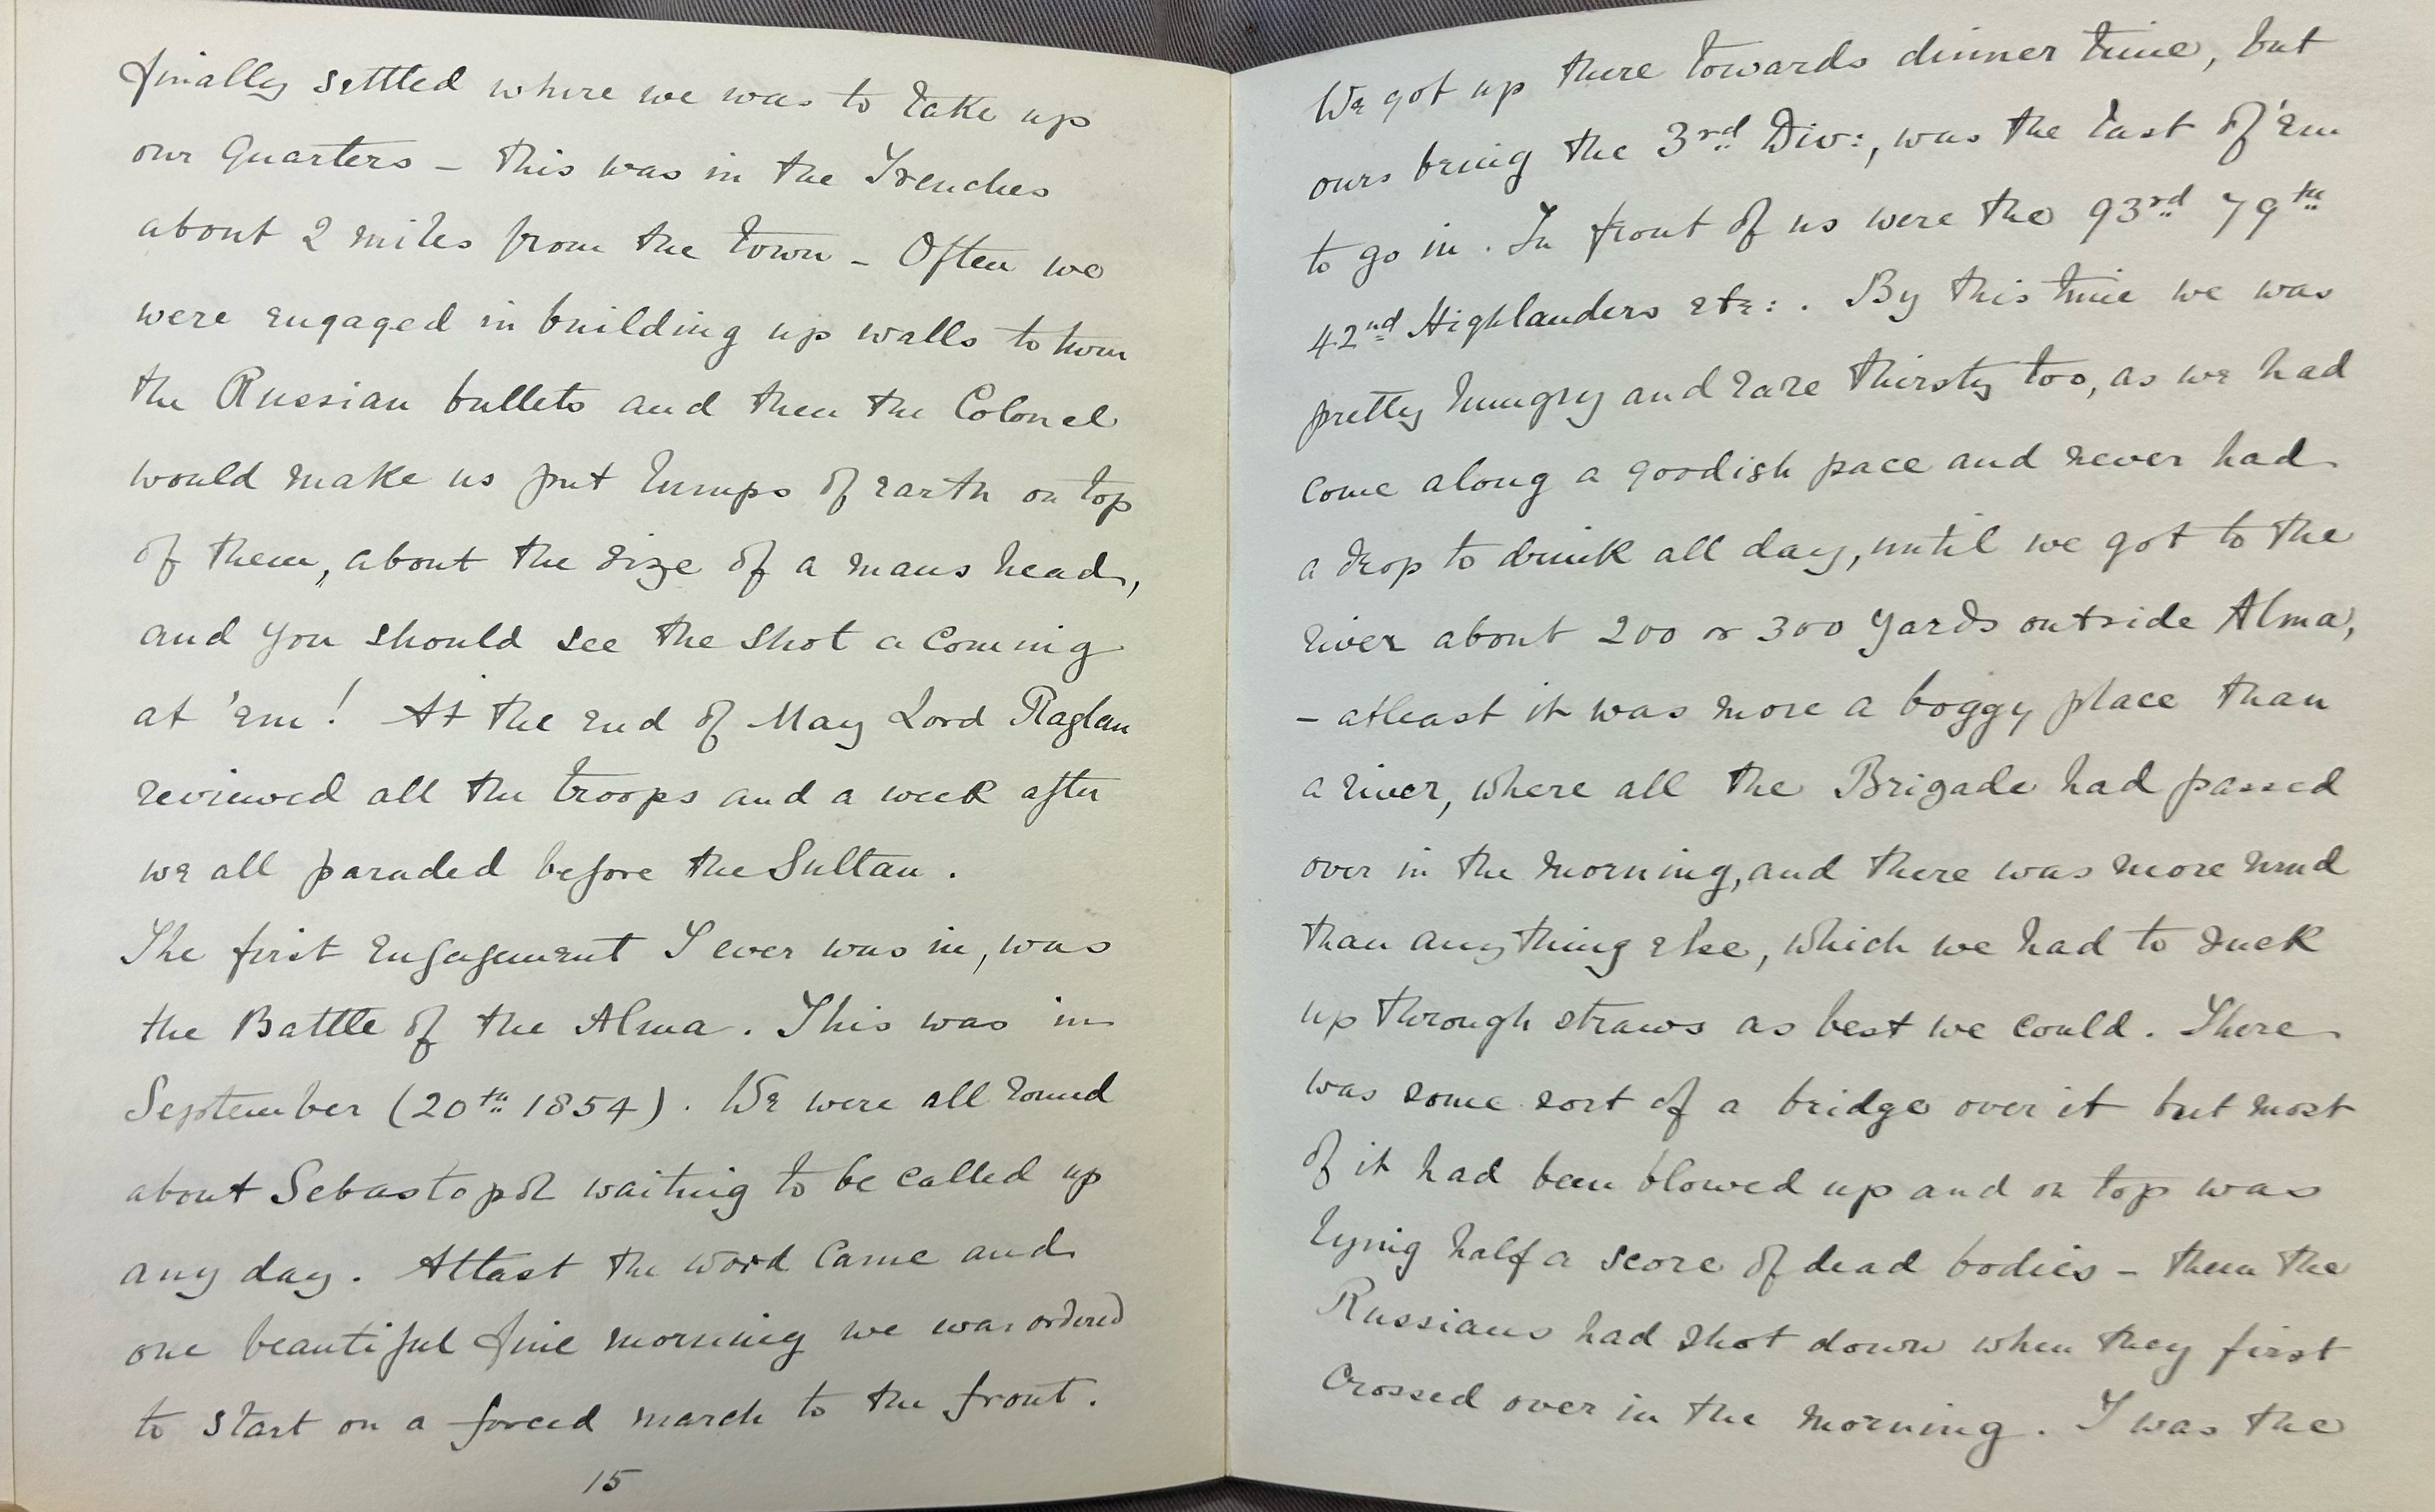 finally settled where we was to take up
our Quarters – this was in the Trenches
about 2 miles from the town – Often we
were engaged in building up walls to turn
the Russian bullets and then the Colonel
would make us put lumps of earth on top
of them, about the size of a mans head,
and you should see the shot a coming
at 'em! At the end of May Lord Raglan
reviewed all the troops and a week after
we all paraded before the Sultan.
The first Engagement I ever was in, was
the Battle of the Alma. This was in
September (20th 1854). We were all round
about Sebastopol waiting to be called up
any day. Atlast the word came and
one beautiful fine morning we was ordered
to start on a forced march to the front.
15
We got up there towards dinner time, but
ours being the 3rd Div:, was the last of 'em
to go in. In front of us were the 93rd 79th
42nd Highlanders etc: . By this time we was
pretty hungry and rare thirsty too, as we had
come along a goodish pace and never had
a drop to drink all day, until we got to the
river about 200 or 300 yards outside Alma,
– atleast it was more a boggy place than
a river, where all the Brigade had passed
over in the morning, and there was more mud
than anything else, which we had to suck
up through straws as best we could. There
was some sort of a bridge over it but most
of it had been blowed up and on top was
lying half a score of dead bodies – them the
Russians had shot down when they first
crossed over in the morning. I was the